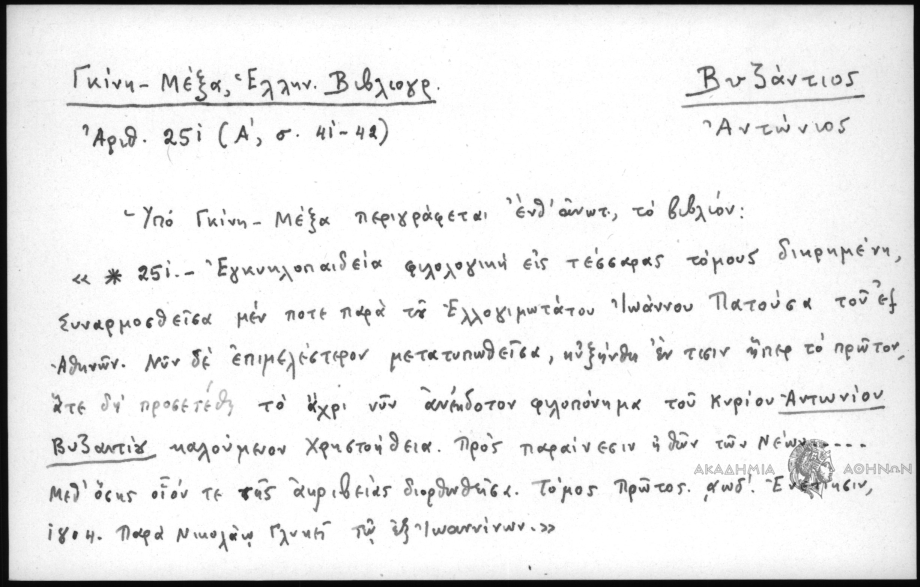 Γκίνη - Μέξα, Ἑλλην. Βιβλιογρ.
Βυζάντιος
Ἀριθ. 251 (Α', σ. 41-42)
Ἀντώνιος
Ὑπό Γκίνη - Μέξα περιγράφεται ἔνθ' ἄνωτ., τό βιβλίον:
« * 251.- Ἐγκυκλοπαιδεία φιλολογική εἰς τέσσαρας τόμους διῃρημένη,
Συναρμοσθεῖσα μέν ποτε παρά τοῦ Ἐλλογιμωτάτου Ἰωάννου Πατούσα τοῦ ἐξ
Ἀθηνῶν. Νῦν δέ ἐπιμελέστερον μετατυπωθεῖσα, ηὐξήνθη ἔν τισιν ἤπερ τό πρῶτον,
ἅτε δή προσετέθη τό ἄχρι νῦν ἀνέκδοτον φιλοπόνημα τοῦ Κυρίου Ἀντωνίου
Βυζαντίου καλούμενον Χρηστοήθεια. Πρός παραίνεσιν ἠθῶν τῶν Νέων.....
ΑΚΑΔΗΜΙΑ ΑΘΗΝΩΝ
Μεθ' ὅσης οἷόν τε τῆς ἀκριβείας διορθωθεῖσα. Τόμος Πρῶτος. αωδ'. Ἐνετίησιν,
1804. Παρά Νικολάῳ Γλυκεῖ τῷ ἐξ Ἰωαννίνων.»